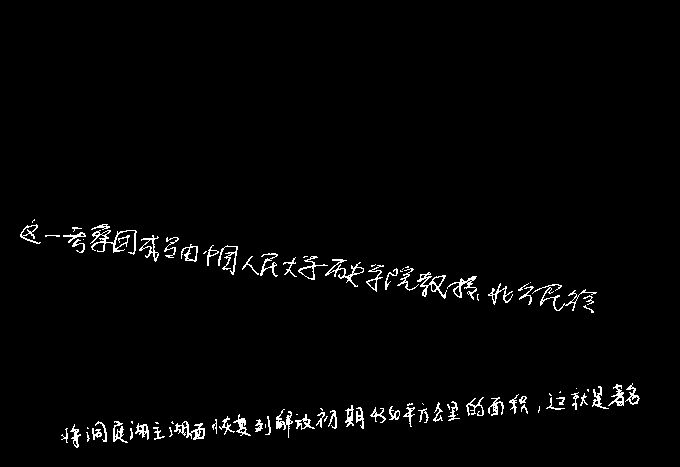 这一考察团成员由中国人民大学历史学院教授、北京民俗
将洞庭湖主湖面恢复到解放初期4350平方公里的面积，这就是著名